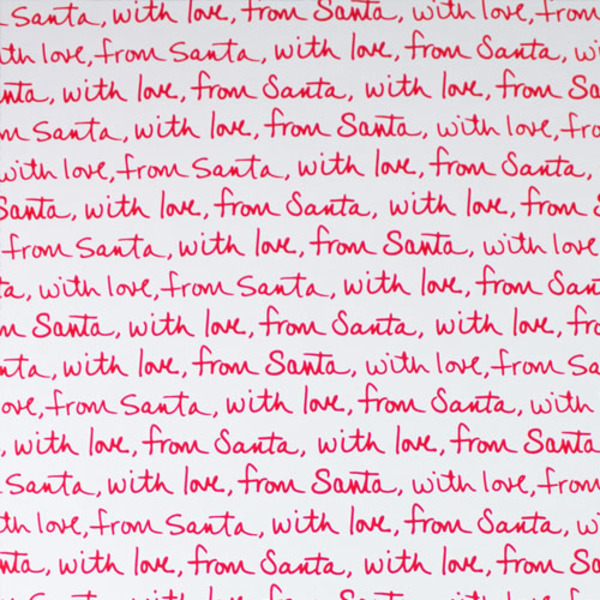 Santa, with love, from Santa, with love, from
with love, from Santa, with love, from Santa,
Santa, with love, from Santa, with love, from Sa
Santa, with love, from Santa, with love, fro
with love, from Santa, with love, from Santa,
Santa, with love, from Santa, with love, from
from Santa, with love, from Santa, with love
ta, with love, from Santa, with love, from San
m Santa, with love, from Santa, with love, fro
nta, with love, from Santa, with love, from Sa
ove, from Santa, with love, from Santa, with
, with love, from Santa, with love, from Santa
Santa, with love, from Santa, with love, from
th love, from Santa, with love, from Santa, w
nta, with love, from Santa, with love, from Sa